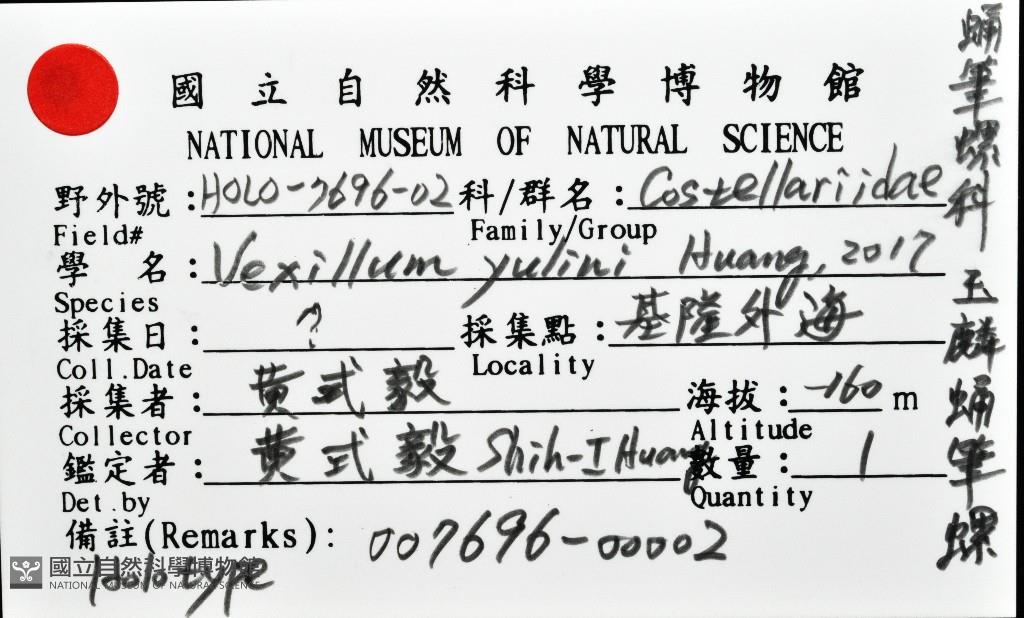 國立自然科學博物館
NATIONAL MUSEUM OF NATURAL SCIENCE
野外號:HOLO-7696-02 科/群名:Costellariidae
Field# Family/Group
學 名:Vexillum yulini Huang, 2017
Species
採集日: ? 採集點:基隆外海
Coll.Date Locality
採集者:黃式毅 海拔:-160 m
Collector Altitude
鑑定者:黃式毅 Shih-I Huang 數量:1
Det.by Quantity
備註(Remarks): 007696-00002
Holotype
國立自然科學博物館
NATIONAL MUSEUM OF NATURAL SCIENCE
蛹筆螺科 玉麟蛹筆螺